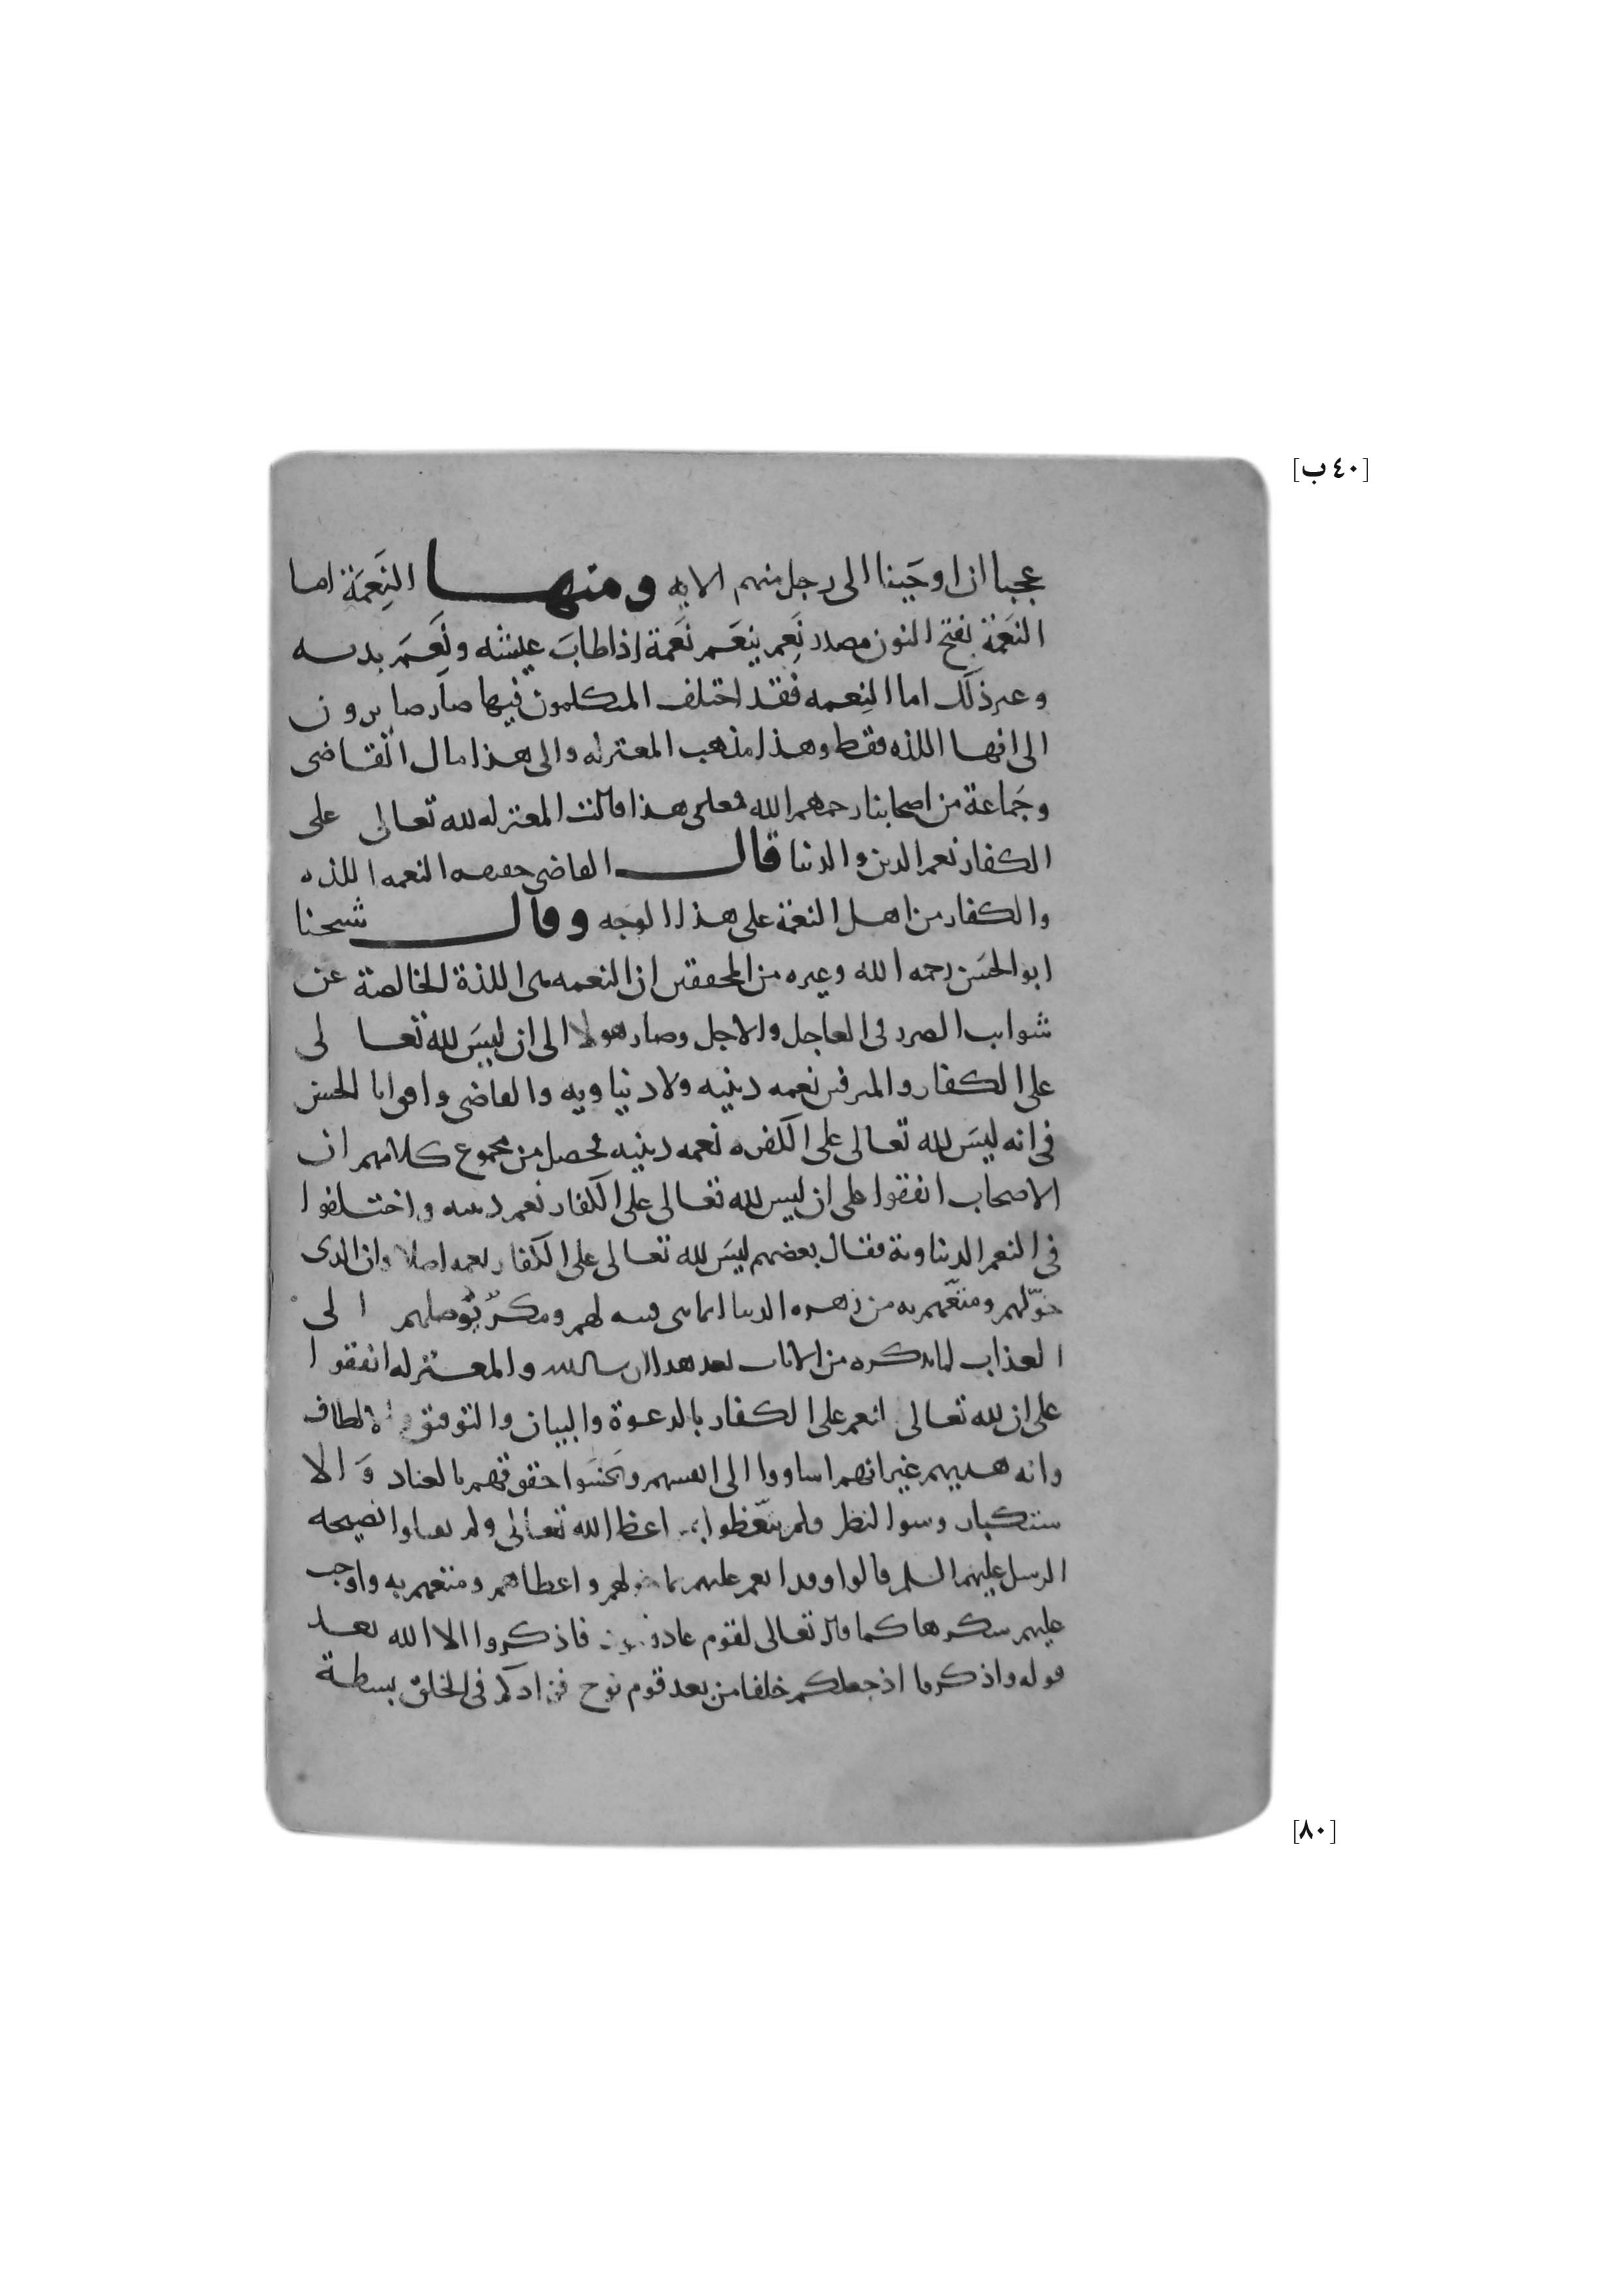 [٤٠ ب]
عجبا ان اوحينا الى رجل منهم الايه ومنها النِعمَة اما
النَعمَة بفتح النون مصدر نَعِم ينعَم نَعمة اذا طابَ عيشه ونَعِمَ بدنه
وغير ذلك اما النِعمه فقد اختلف المتكلمون فيها صار صايرون
الى انها اللذه فقط وهذا مذهب المعتزله والى هذا مال القاضى
وجَماعة من اصحابنا رحمهم الله فعلى هذا قالت المعتزله لله تعالى على
الكفار نعم الدين والدنيا قال القاضى حقيقه النعمه اللذه
والكفار من اهل النعمة على هذا الوجه وقال شيخنا
ابو الحسَن رحمه الله وغيره من المحققين ان النعمه هى اللذة الخالصة عن
شوايب الضرر فى العاجل والاجل وصار هولا الى ان ليسَ لله تعالى
على الكفار والمترفين نعمه دينيه ولا دنياويه والقاضى وافق ابا الحسن
فى انه ليسَ لله تعالى على الكفره نعمه دينيه فحصل من مجموع كلامهم ان
الاصحاب اتفقوا على ان ليس لله تعالى على الكفار نعم دينيه واختلفوا
فى النعم الدنياوية فقال بعضهم ليسَ لله تعالى على الكفار نعمه اصلا وان الذى
خوّلهم ومتّعهم به من زهره الدنيا انما هى فتنه لهم ومكرٌ يُوصلهم الى
العذاب لما نذكره من الايات بعد هذا ان شا الله والمعتزله اتفقوا
على ان لله تعالى انعم على الكفار بالدعوة والبيان والتوفيق والالطاف
وانه هديهم غير انهم اساووا الى انفسهم وبَخسَوا حقوقهم بالعناد وَالا
ستكبار وسو النظر ولم يتّعظوا بمواعظ الله تعالى ولم يقبلوا نصيحه
الرسل عليهم السلم قالوا وقد انعم عليهم بما خولهم واعطاهم ومتعهم به واوجب
عليهم شكرها كما قال تعالى لقوم عاد فاذكروا الا الله بعد
قوله واذكروا اذ جعلكم خلفا من بعد قوم نوح فزادكم فى الخلق بسطة
[٨٠]